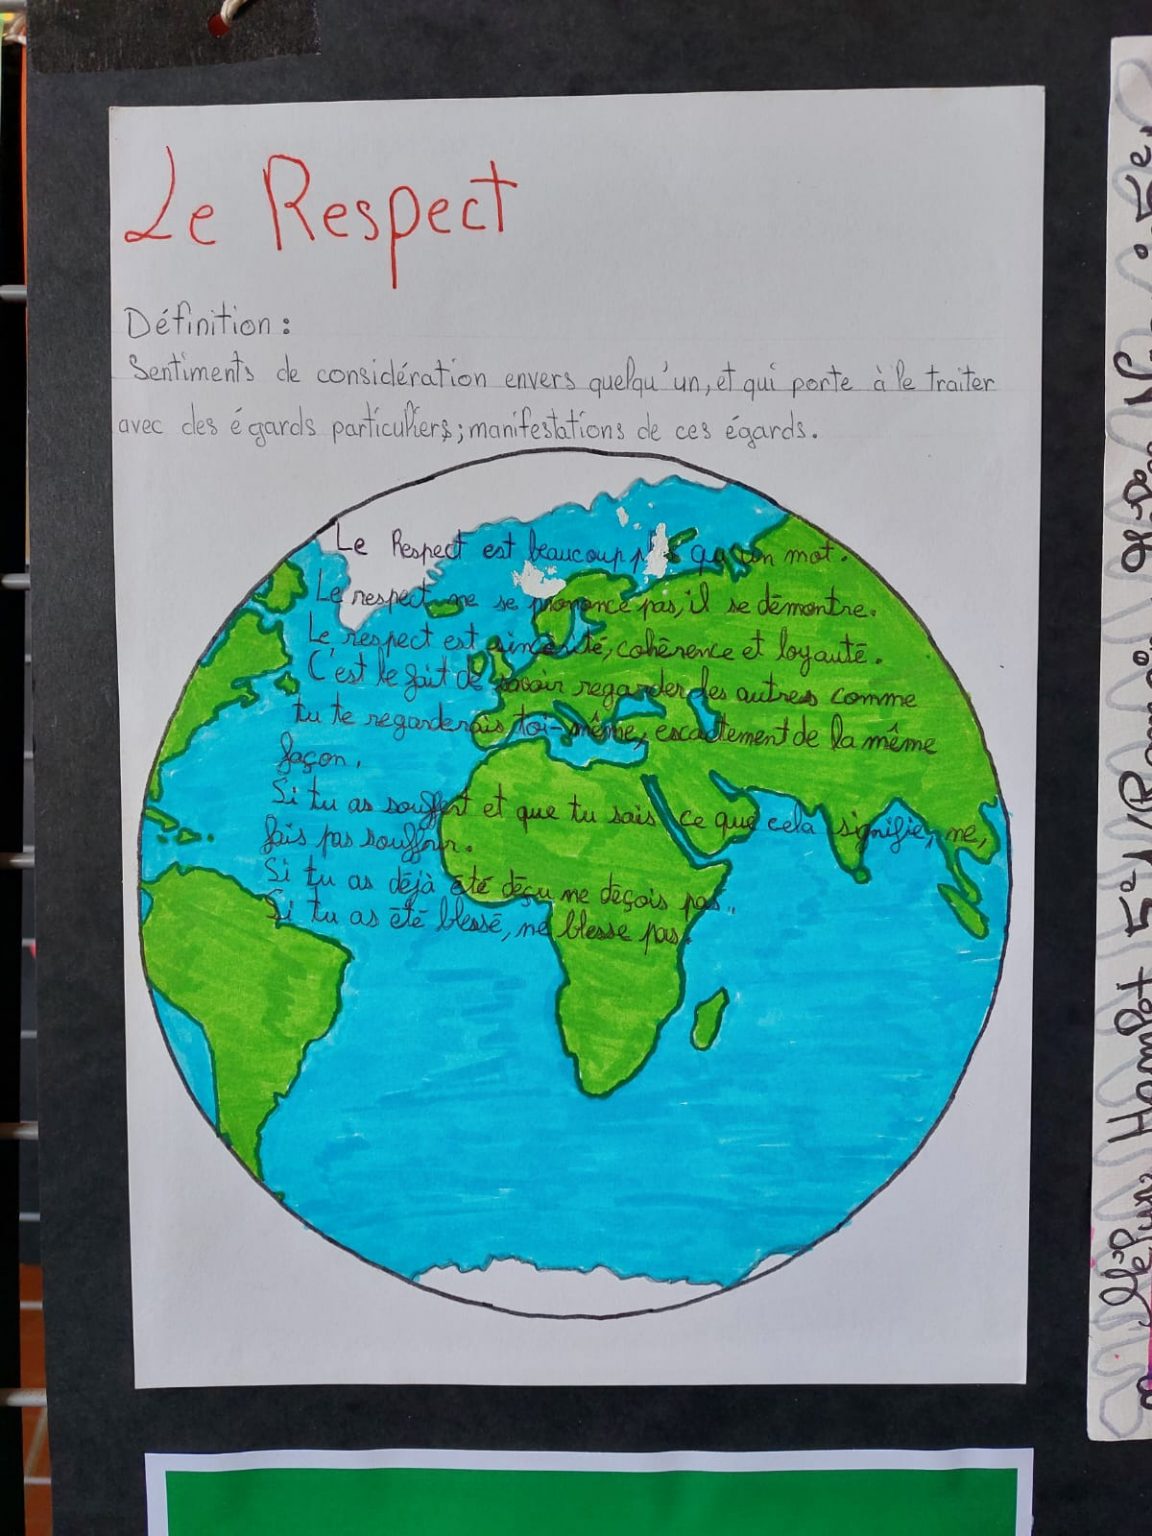 Le Respect
Définition :
Sentiments de considération envers quelqu'un, et qui porte à le traiter
avec des égards particuliers; manifestations de ces égards.
Le Respect est beaucoup plus qu'un mot.
Le respect ne se prononce pas, il se démontre.
Le respect est sincérité, cohérence et loyauté.
C'est le fait de savoir regarder les autres comme
tu te regarderais toi-même, escactement de la même
façon.
Si tu as souffert et que tu sais ce que cela signifie, ne,
fais pas souffrir.
Si tu as déjà été déçu ne déçois pas.
Si tu as été blessé, ne blesse pas.